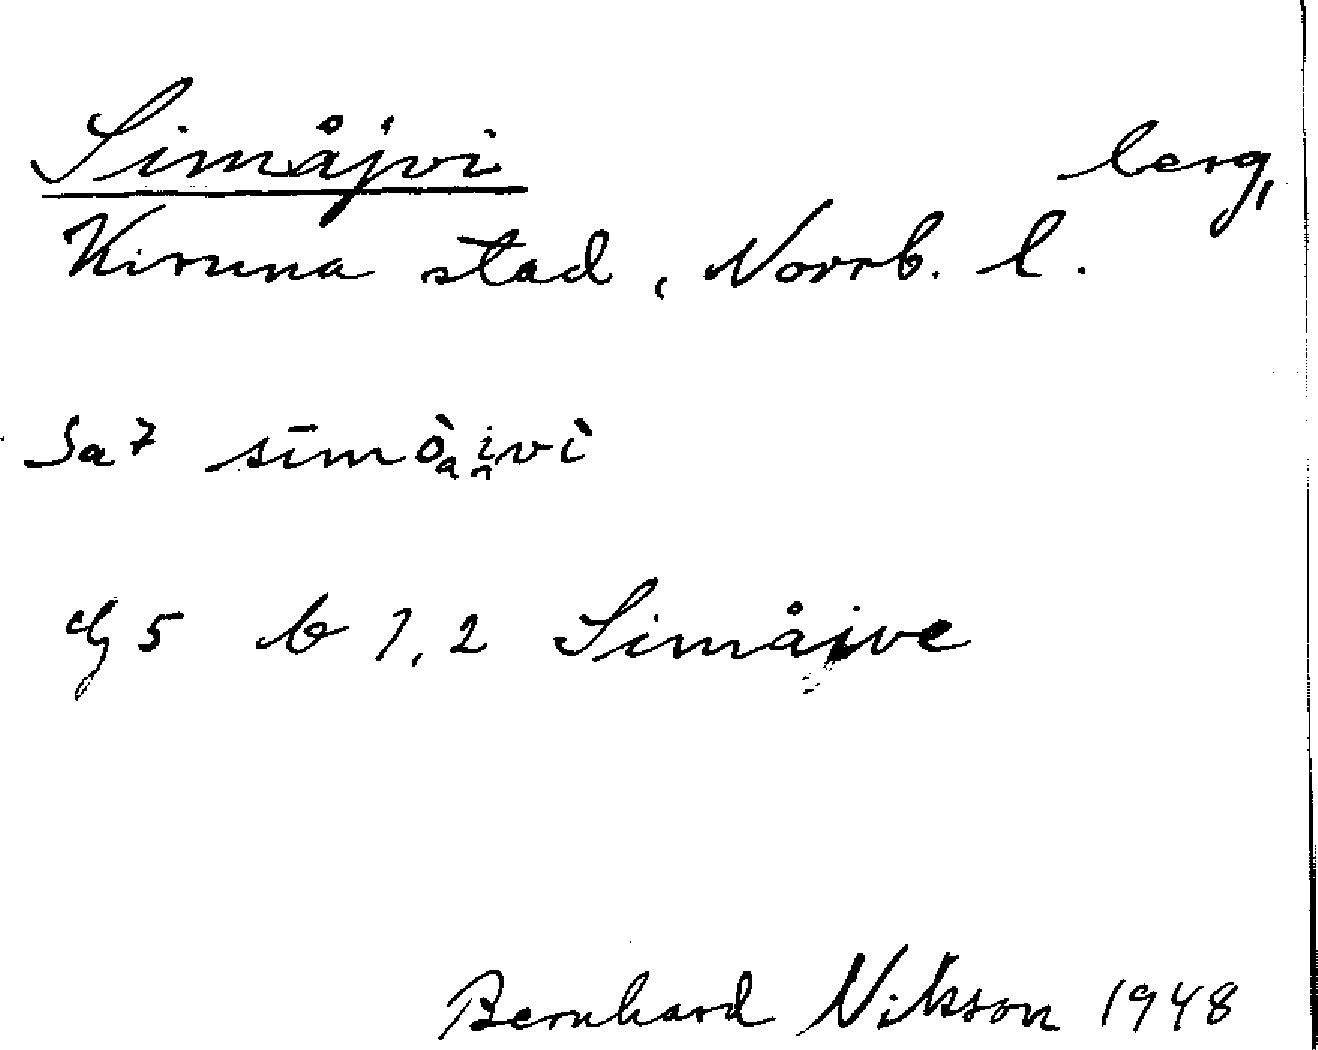 Simåjvi berg,
Kiruna stad, Norrb. l.
Sa 7 sīmòₐi̭vì
Eg 5 b 1,2 Simåive
Bernhard Nilsson 1948